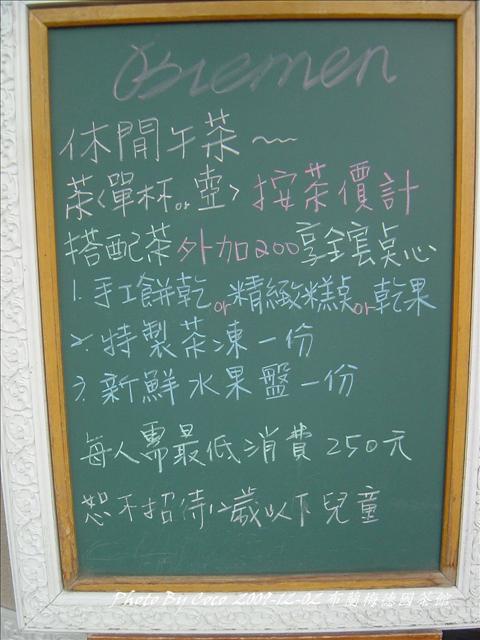 Bremen
休閒午茶～
茶<單杯or壺> 按茶價計
搭配茶外加200享全套點心
1. 手工餅乾or精緻糕點or乾果
2. 特製茶凍一份
3. 新鮮水果盤一份
每人需最低消費250元
恕不招待12歲以下兒童
Photo By Coco 2009-12-02 布蘭梅德國茶館